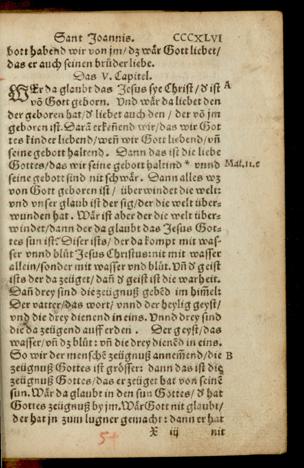 Sant Joannis. CCCXLVI
bott habend wir von jm/dz wär Gott liebet/
das er auch seinen brüder liebe.
Das V. Capitel.
WEr da glaubt das Jesus sye Christ/d̕ ist A
vō Gott geborn. Und wär da liebet den
der geboren hat/d̕ liebet auch den / der vō jm
geboren ist. Darā erkēnend wir/das wir Got
tes kinder liebend/weñ wir Gott liebend/vñ
seine gebott haltend. Dann das ist die liebe
Gottes/das wir seine gebott haltind * vnnd Mat.11.c
seine gebott sind nit schwär. Dann alles wz
von Gott geboren ist / überwindet die welt:
vnd vnser glaub ist der sig/der die welt über-
wunden hat. Wär ist aber der die welt über-
windet/dann der da glaubt das Jesus Got-
tes sun ist? Diser ists/der da kompt mit was-
ser vnnd blüt Jesus Christus: nit mit wasser
allein/sonder mit wasser vnd blüt. Vñ d̕ geist
ists der da zeüget/dañ d̕ geist ist die warheit.
Dañ drey sind die zeügnuß gebēd im him̄el:
Der vatter/das wort/vnnd der heylig geyst/
vnd die drey dienend in eins. Vnnd drey sind
die da zeügend auff erden. Der geyst/das
wasser/vñ dz blüt: vñ die drey dienēd in eins.
So wir der menschē zeügnuß annem̄end/die B
zeügnuß Gottes ist grösser: dann das ist die
zeügnuß Gottes/das er zeüget hat von seinē
sun. Wär da glaubt in den sun Gottes/d̕ hat
Gottes zeügnuß by jm. Wär Gott nit glaubt/
der hat jn zum lugner gemacht: dann er hat
X iij nit